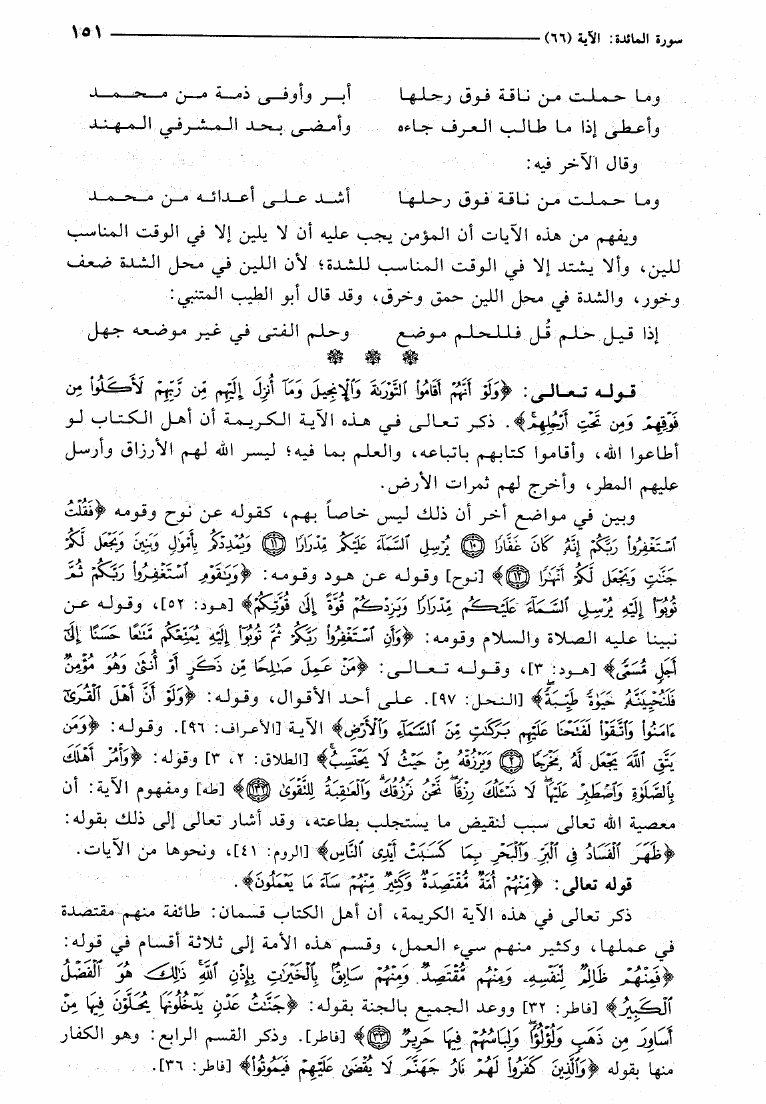 سورة المائدة: الآية (٦٦) ١٥١
وما حملت من ناقة فوق رحلها أبر وأوفى ذمة من محمد
وأعطى إذا ما طالب العرف جاءه وأمضى بحد المشرفي المهند
وقال الآخر فيه:
وما حملت من ناقة فوق رحلها أشد على أعدائه من محمد
ويفهم من هذه الآيات أن المؤمن يجب عليه أن لا يلين إلا في الوقت المناسب
للين، وألا يشتد إلا في الوقت المناسب للشدة؛ لأن اللين في محل الشدة ضعف
وخور، والشدة في محل اللين حمق وخرق، وقد قال أبو الطيب المتنبي:
إذا قيل حلم قُل فللحلم موضع وحلم الفتى في غير موضعه جهل
قوله تعالى: ﴿وَلَوْ أَنَّهُمْ أَقَامُوا۟ ٱلتَّوْرَىٰةَ وَٱلْإِنجِيلَ وَمَآ أُنزِلَ إِلَيْهِم مِّن رَّبِّهِمْ لَأَكَلُوا۟ مِن
فَوْقِهِمْ وَمِن تَحْتِ أَرْجُلِهِم﴾. ذكر تعالى في هذه الآية الكريمة أن أهل الكتاب لو
أطاعوا الله، وأقاموا كتابهم باتباعه، والعلم بما فيه؛ ليسر الله لهم الأرزاق وأرسل
عليهم المطر، وأخرج لهم ثمرات الأرض.
وبين في مواضع أخر أن ذلك ليس خاصاً بهم، كقوله عن نوح وقومه ﴿فَقُلْتُ
ٱسْتَغْفِرُوا۟ رَبَّكُمْ إِنَّهُۥ كَانَ غَفَّارًا ١٠ يُرْسِلِ ٱلسَّمَآءَ عَلَيْكُم مِّدْرَارًا ١١ وَيُمْدِدْكُم بِأَمْوَٰلٍ وَبَنِينَ وَيَجْعَل لَّكُمْ
جَنَّـٰتٍ وَيَجْعَل لَّكُمْ أَنْهَـٰرًا ١٢﴾ [نوح] وقوله عن هود وقومه: ﴿وَيَـٰقَوْمِ ٱسْتَغْفِرُوا۟ رَبَّكُمْ ثُمَّ
تُوبُوٓا۟ إِلَيْهِ يُرْسِلِ ٱلسَّمَآءَ عَلَيْكُم مِّدْرَارًا وَيَزِدْكُمْ قُوَّةً إِلَىٰ قُوَّتِكُمْ﴾ [هود: ٥٢]، وقوله عن
نبينا عليه الصلاة والسلام وقومه: ﴿وَأَنِ ٱسْتَغْفِرُوا۟ رَبَّكُمْ ثُمَّ تُوبُوٓا۟ إِلَيْهِ يُمَتِّعْكُم مَّتَـٰعًا حَسَنًا إِلَىٰٓ
أَجَلٍ مُّسَمًّى﴾ [هود: ٣]، وقوله تعالى: ﴿مَنْ عَمِلَ صَـٰلِحًا مِّن ذَكَرٍ أَوْ أُنثَىٰ وَهُوَ مُؤْمِنٌ
فَلَنُحْيِيَنَّهُۥ حَيَوٰةً طَيِّبَةً﴾ [النحل: ٩٧]. على أحد الأقوال، وقوله: ﴿وَلَوْ أَنَّ أَهْلَ ٱلْقُرَىٰٓ
ءَامَنُوا۟ وَٱتَّقَوْا۟ لَفَتَحْنَا عَلَيْهِم بَرَكَـٰتٍ مِّنَ ٱلسَّمَآءِ وَٱلْأَرْضِ﴾ الآية [الأعراف: ٩٦]. وقوله: ﴿وَمَن
يَتَّقِ ٱللَّهَ يَجْعَل لَّهُۥ مَخْرَجًا ٢ وَيَرْزُقْهُ مِنْ حَيْثُ لَا يَحْتَسِبُ﴾ [الطلاق: ٢، ٣] وقوله: ﴿وَأْمُرْ أَهْلَكَ
بِٱلصَّلَوٰةِ وَٱصْطَبِرْ عَلَيْهَا لَا نَسْـَٔلُكَ رِزْقًا نَّحْنُ نَرْزُقُكَ وَٱلْعَـٰقِبَةُ لِلتَّقْوَىٰ ١٣٢﴾ [طه] ومفهوم الآية: أن
معصية الله تعالى سبب لنقيض ما يستجلب بطاعته، وقد أشار تعالى إلى ذلك بقوله:
﴿ظَهَرَ ٱلْفَسَادُ فِى ٱلْبَرِّ وَٱلْبَحْرِ بِمَا كَسَبَتْ أَيْدِى ٱلنَّاسِ﴾ [الروم: ٤١]، ونحوها من الآيات.
قوله تعالى: ﴿مِّنْهُمْ أُمَّةٌ مُّقْتَصِدَةٌ وَكَثِيرٌ مِّنْهُمْ سَآءَ مَا يَعْمَلُونَ﴾.
ذكر تعالى في هذه الآية الكريمة، أن أهل الكتاب قسمان: طائفة منهم مقتصدة
في عملها، وكثير منهم سيء العمل، وقسم هذه الأمة إلى ثلاثة أقسام في قوله:
﴿فَمِنْهُمْ ظَالِمٌ لِّنَفْسِهِۦ وَمِنْهُم مُّقْتَصِدٌ وَمِنْهُمْ سَابِقٌۢ بِٱلْخَيْرَٰتِ بِإِذْنِ ٱللَّهِ ذَٰلِكَ هُوَ ٱلْفَضْلُ
ٱلْكَبِيرُ﴾ [فاطر: ٣٢] ووعد الجميع بالجنة بقوله: ﴿جَنَّـٰتُ عَدْنٍ يَدْخُلُونَهَا يُحَلَّوْنَ فِيهَا مِنْ
أَسَاوِرَ مِن ذَهَبٍ وَلُؤْلُؤًا وَلِبَاسُهُمْ فِيهَا حَرِيرٌ ٣٣﴾ [فاطر]. وذكر القسم الرابع: وهو الكفار
منها بقوله ﴿وَٱلَّذِينَ كَفَرُوا۟ لَهُمْ نَارُ جَهَنَّمَ لَا يُقْضَىٰ عَلَيْهِمْ فَيَمُوتُوا۟﴾ [فاطر: ٣٦].